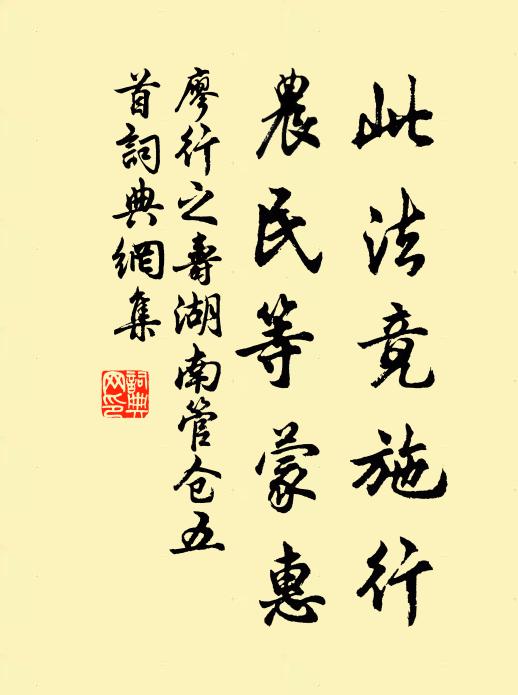 此法竟施行
農民等蒙惠
廖行之壽湖南管仓五
首詞典網集
詞典
网印